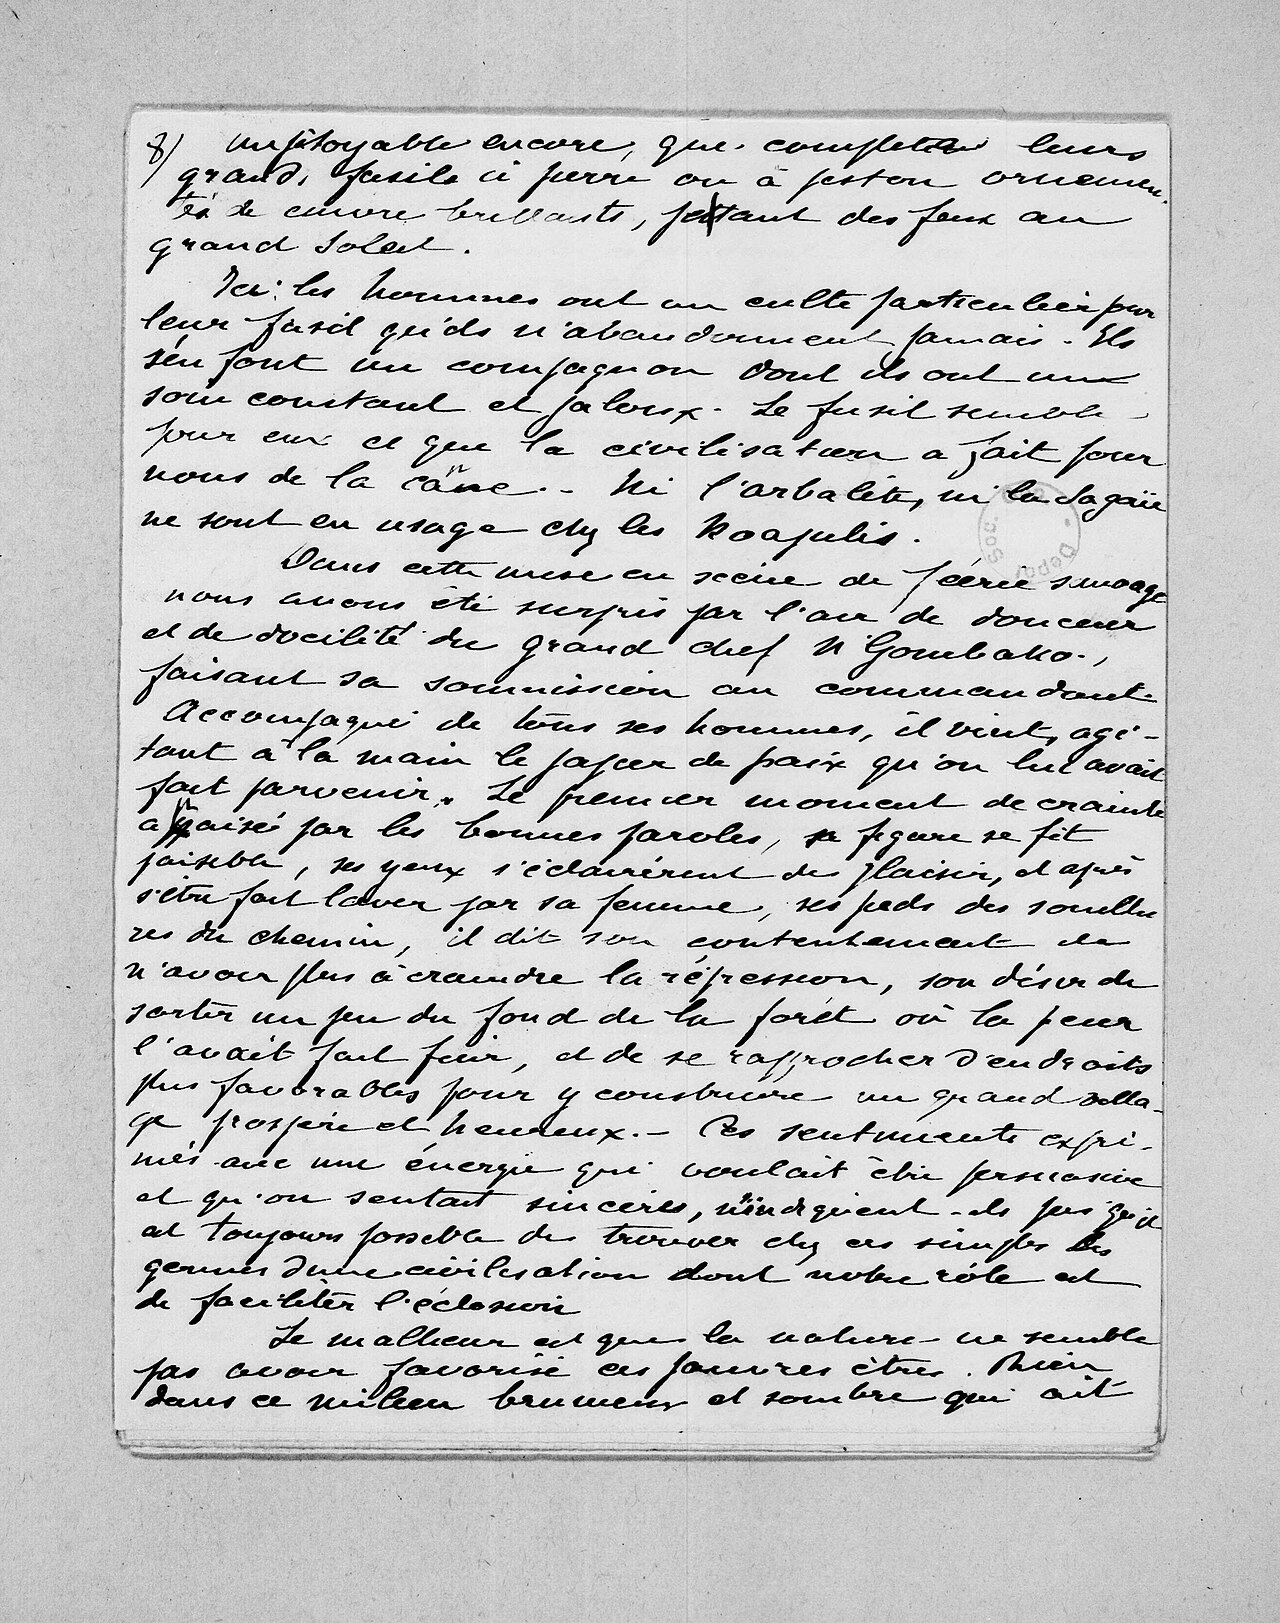 8) impitoyable encore, que complètent leurs
grands fusils à pierre ou à piston ornemen-
tés de cuivre brillants, jetant des feux au
grand Soleil.
Ici les hommes ont un culte particulier pour
leur fusil qu'ils n'abandonnent jamais. Ils
s'en font un compagnon dont ils ont un
soin constant et jaloux. Le fusil semble
pour eux ce que la civilisation a fait pour
nous de la canne. - Ni l'arbalète, ni la Sagaïe
ne sont en usage chez les Koapulis.
Dans cette mise en scène de féerie sauvage
nous avons été surpris par l'air de douceur
et de docilité du grand chef N'Gombako.,
faisant sa soumission au commandant.
Accompagné de tous ses hommes, il vient, agi-
tant à la main le papier de paix qu'on lui avait
fait parvenir. Le premier moment de crainte
apaisé par les bonnes paroles, sa figure se fit
paisible, ses yeux s'éclairèrent de plaisir, et après
s'être fait laver par sa femme, ses pieds des souillu
res du chemin, il dit son contentement de
n'avoir plus à craindre la répression, son désir de
sortir un peu du fond de la forêt où la peur
l'avait fait fuir, et de se rapprocher d'endroits
plus favorables pour y construire un grand villa-
ge prospère et heureux. - Ces sentiments expri-
més avec une énergie qui voulait être persuasive
et qu'on sentait sincères, n'indiquent-ils pas qu'il
est toujours possible de trouver chez ces simples les
germes d'une civilisation dont notre rôle est
de faciliter l'éclosion
Le malheur est que la nature ne semble
pas avoir favorisé ces pauvres êtres. Rien
dans ce milieu brumeux et sombre qui ait
Soc. Dépo